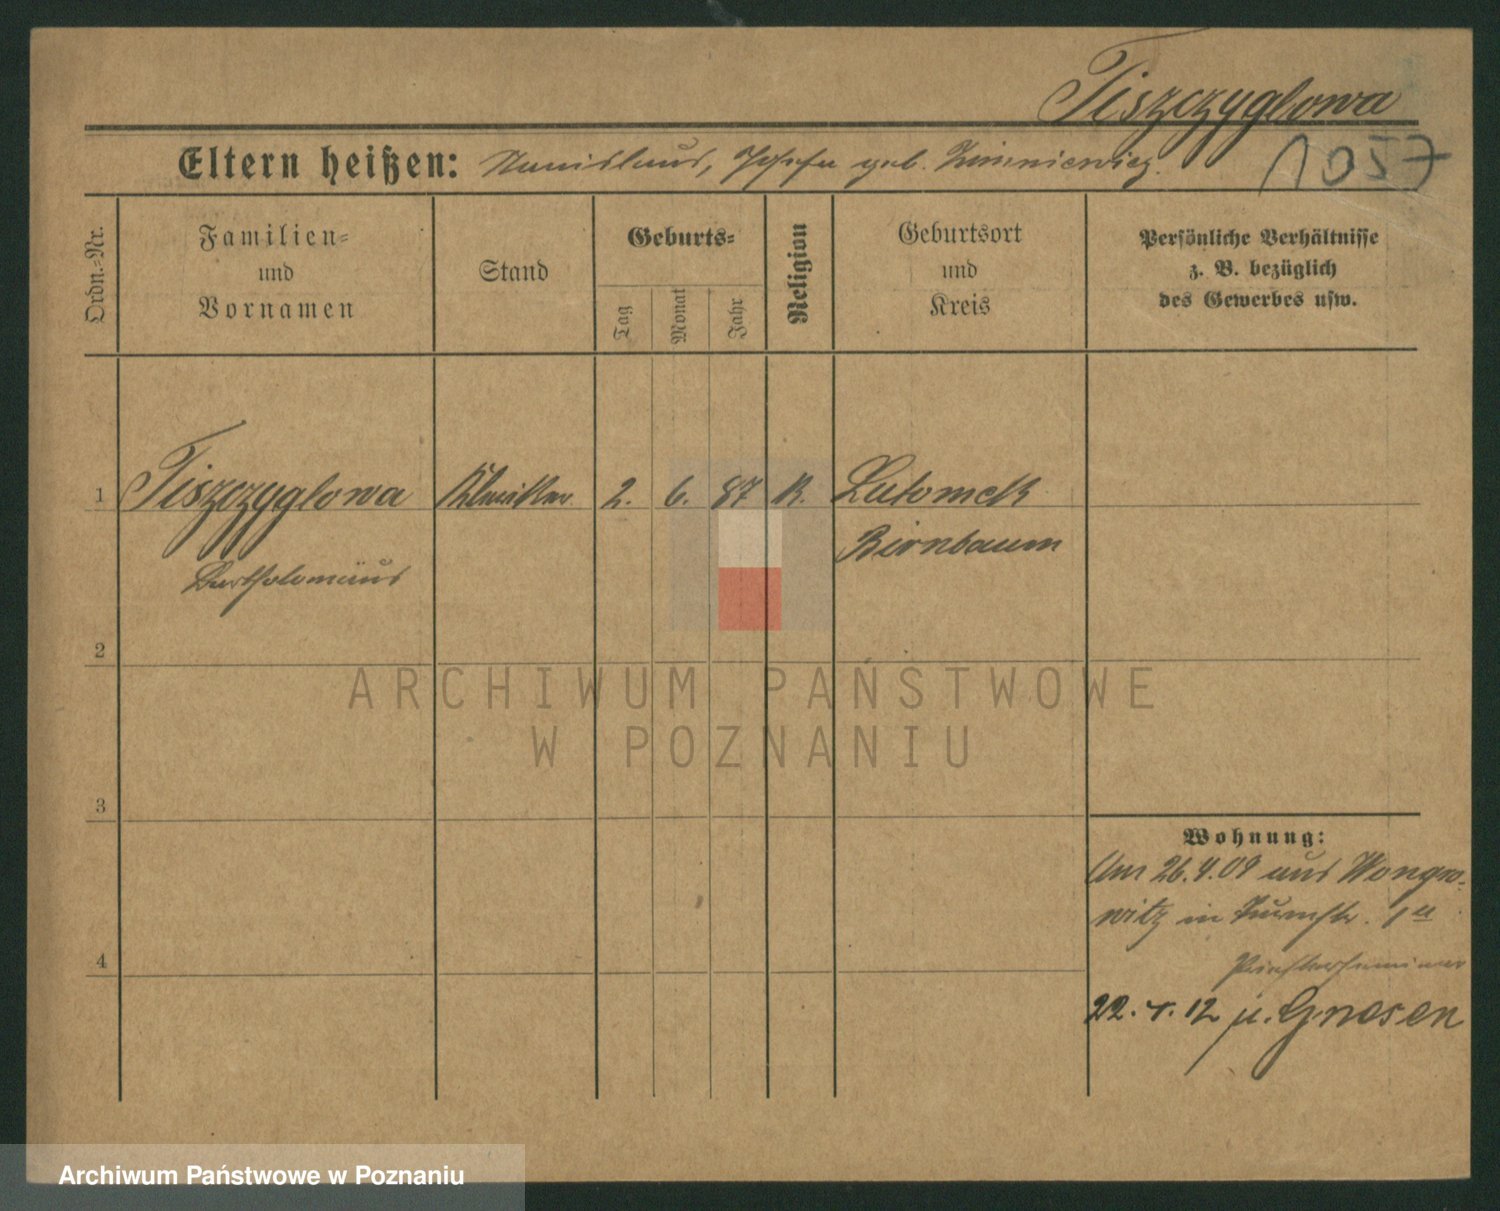 Tiszczyglowa
Eltern heißen: Stanislaus, Josefa geb. Zimniewicz.
1057
Ordn.-Nr.
Familien-
und
Vornamen
Stand
Geburts-
Tag
Monat
Jahr
Religion
Geburtsort
und
Kreis
Persönliche Verhältnisse
z. B. bezüglich
des Gewerbes usw.
1 Tiszczyglowa Kleriker 2. 6. 87 K. Lutomek
Bartholomäus Birnbaum
2
3
4
Wohnung:
Am 26.4.09 aus Wongro-
witz in Turmstr. 1a
Priesterseminar
22. 12 n. Gnesen
ARCHIWUM PAŃSTWOWE
W POZNANIU
Archiwum Państwowe w Poznaniu